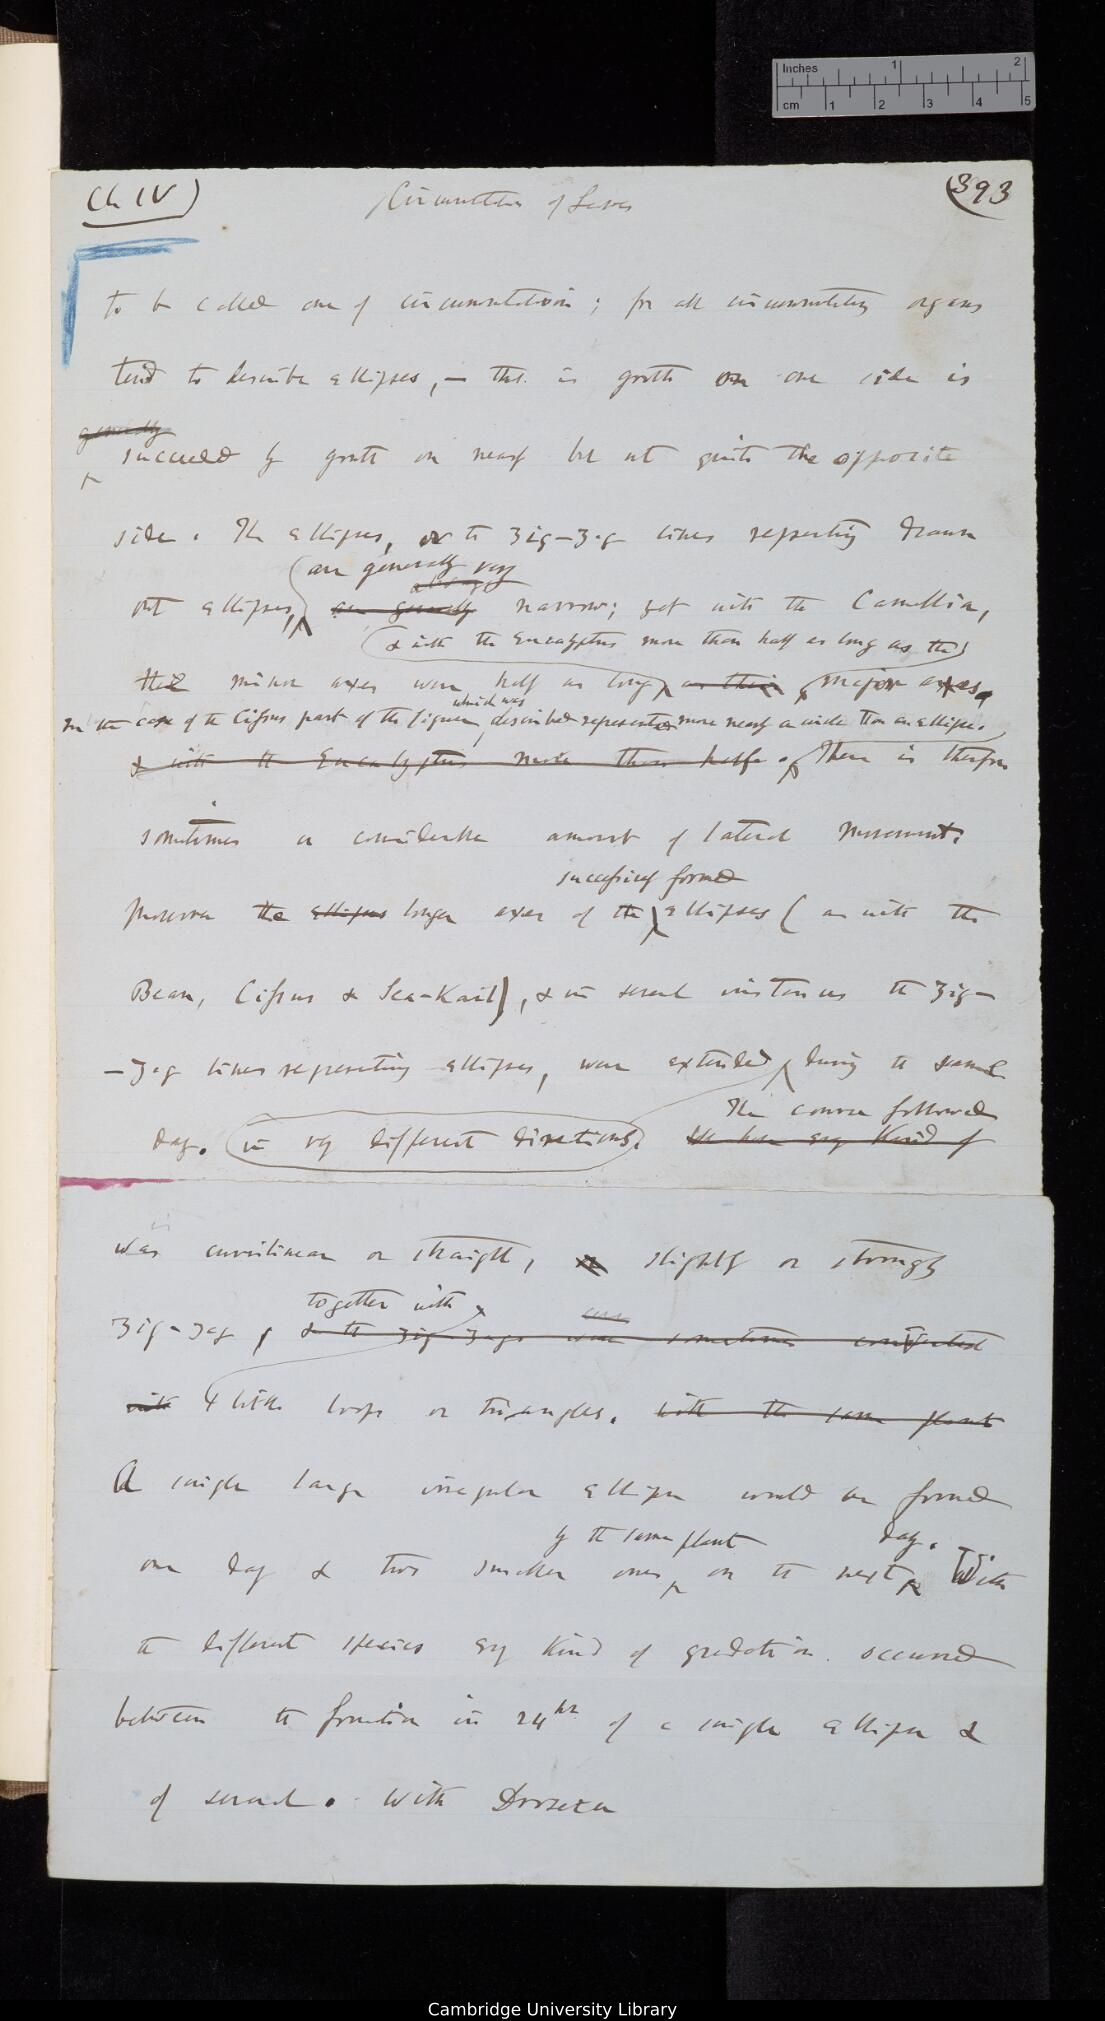 Inches 1 2
cm 1 2 3 4 5
Ch IV) Circumnutation of Leaves (393
to be called one of circumnutation; for all circumnutating organs
tend to describe ellipses, — that is growth on one side is
generally
succeeded by growth on nearly but not quite the opposite
side. The ellipses, or the zig-zag lines representing drawn
are generally very
out ellipses, are generally narrow; yet with the Camellia,
& with the Eucalyptus more than half as long as the
their minor axes were half as long as their major axes.
In the case of the Cissus part of the figure, which was described represented more nearly a circle than an ellipse.
& with the Eucalyptus more than half. There is therefore
sometimes a considerable amount of lateral movement.
successively formed
Moreover the ellipses longer axes of the ellipses (as with the
Bean, Cissus & Sea-Kail), & in several instances the zig-
-zag lines representing ellipses, were extended during the same
The course followed
day. in very different directions. every kind of
was curvilinear or straight, or slightly or strongly
together with
zig-zag, & the zig-zags were sometimes
with & little loops or triangles. with the same plant
A single large irregular ellipse would be formed
by the same plant day.
one day & two smaller ones on the next With
the different species every kind of gradation occurred
between the formation in 24 hr of a single ellipse &
of several. With Drosera
Cambridge University Library